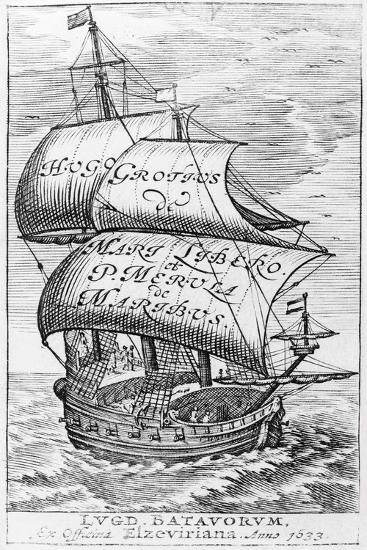 HUGO GROTIUS
de
MARI LIBERO.
et
P. MERULA
de
MARIBUS.
LVGD. BATAVORVM,
Ex Officina Elzeviriana. Anno 1633.